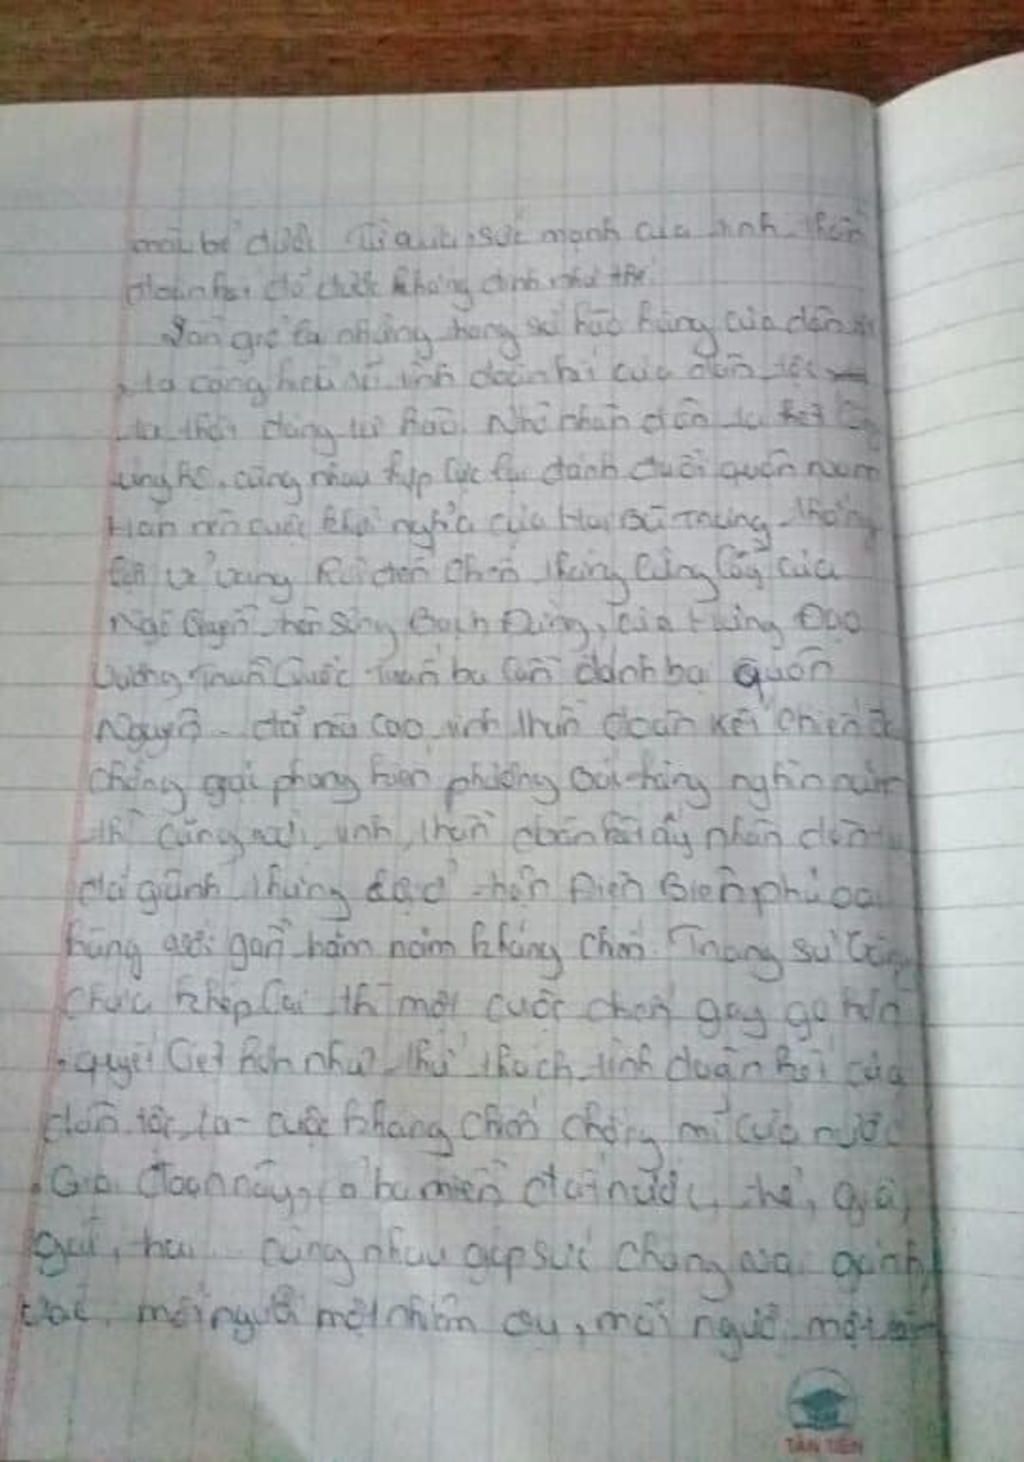 bẻ được. sức mạnh của tinh thần
đã được khẳng định như thế.
những trang sử hào hùng của dân
ta càng tình đoàn kết của dân tộc
ta thật đáng tự hào. Nhờ nhân dân ta hết
ủng hộ, cùng nhau hợp lực lại đánh đuổi quân nam
Hán nên cuộc khởi nghĩa của Hai Bà Trưng thắng
vang Rồi đến chiến thắng lừng lẫy của
Ngô Quyền trên sông Bạch Đằng, của Hưng Đạo
Vương Trần Quốc Tuấn ba lần đánh bại quân
Nguyên đã nêu cao tinh thần đoàn kết
chống giặc phong kiến phương hàng nghìn năm
thì cũng với tinh thần đoàn kết ấy nhân dân
đã giành thắng trận Điện Biên phủ oai
hùng với gần trăm năm kháng chiến. Trang sử
chưa khép lại thì một cuộc chiến gay go hơn
quyết liệt hơn như thử thách tình đoàn kết của
dân tộc ta - cuộc kháng chiến chống mĩ cứu nước
Giai đoạn này, cả ba miền đất nước, trẻ, già,
gái, trai cùng nhau góp sức chung vai gánh
vác, mỗi người một nhiệm vụ, mỗi người một
TÂN TIẾN